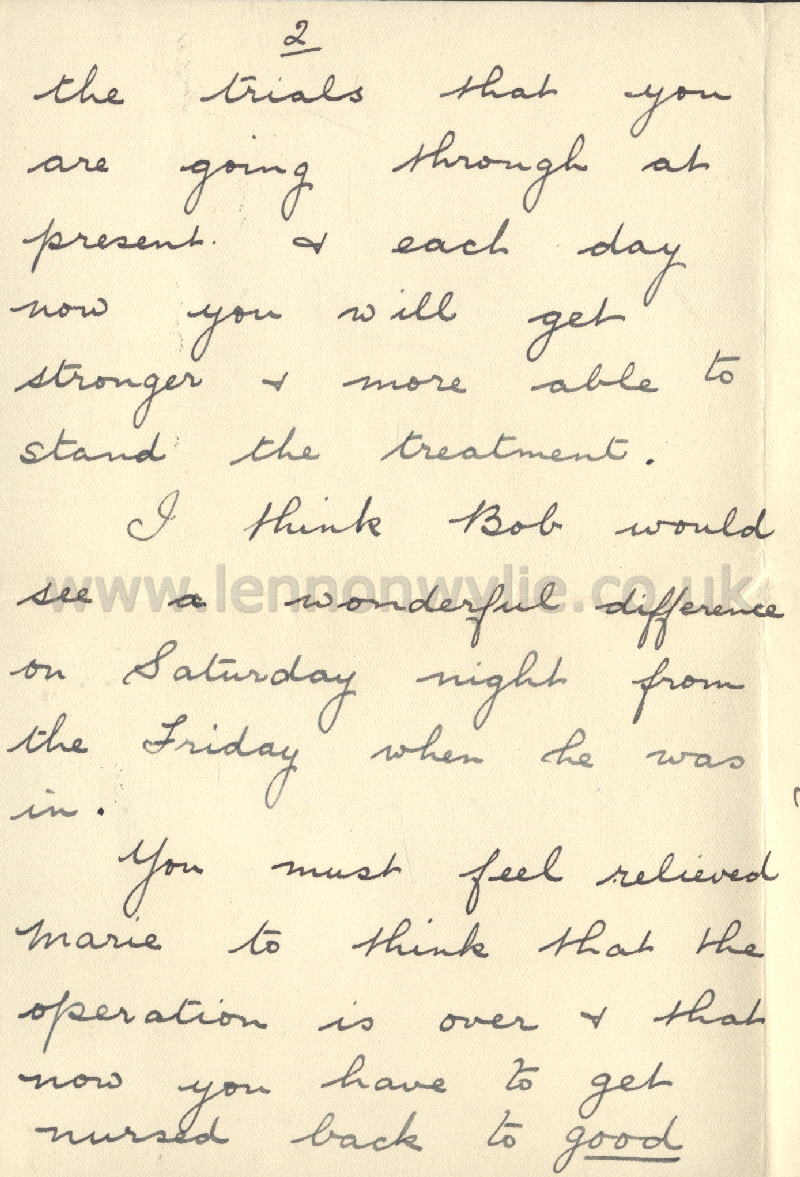 2
the trials that you
are going through at
present. & each day
now you will get
stronger & more able to
stand the treatment.
I think Bob would
www.lennonwylie.co.uk
see a wonderful difference
on Saturday night from
the Friday when he was
in.
You must feel relieved
Marie to think that the
operation is over & that
now you have to get
nursed back to good